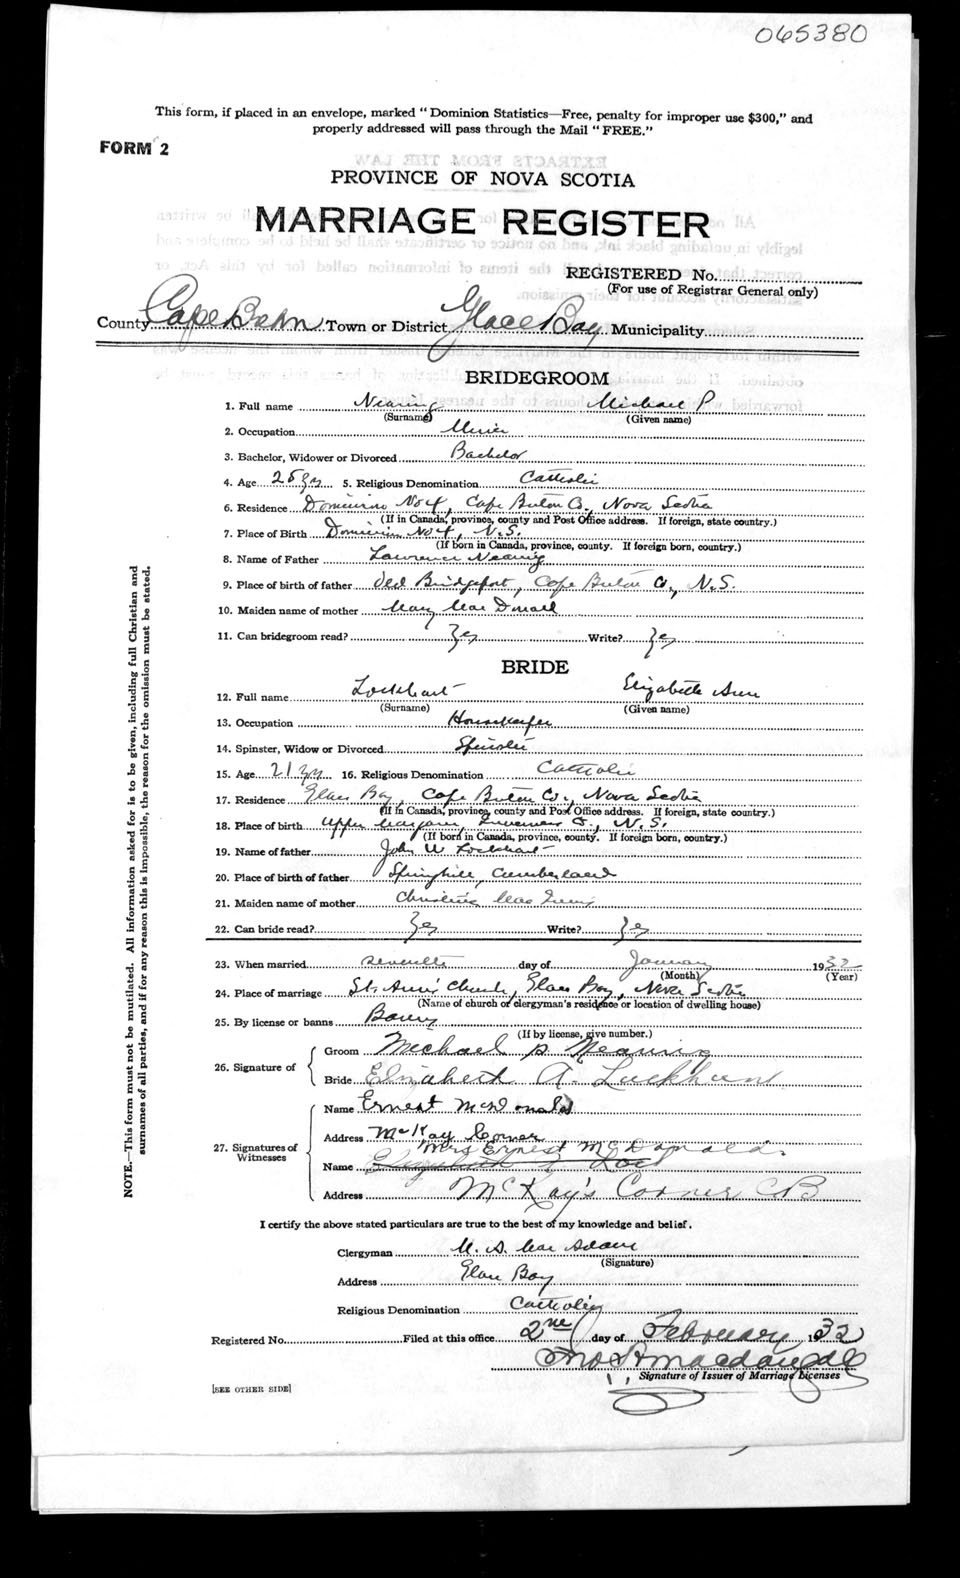 065380
This form, if placed in an envelope, marked "Dominion Statistics—Free, penalty for improper use $300," and
properly addressed will pass through the Mail "FREE."
FORM 2
PROVINCE OF NOVA SCOTIA
MARRIAGE REGISTER
REGISTERED No.
(For use of Registrar General only)
County Cape Breton Town or District Glace Bay Municipality
BRIDEGROOM
1. Full name Nearing Michael P.
(Surname) (Given name)
2. Occupation Miner
3. Bachelor, Widower or Divorced Bachelor
4. Age 25 yrs 5. Religious Denomination Catholic
6. Residence Dominion No 4, Cape Breton Co., Nova Scotia
(If in Canada, province, county and Post Office address. If foreign, state country.)
7. Place of Birth Dominion No 4, N.S.
(If born in Canada, province, county. If foreign born, country.)
8. Name of Father Lawrence Nearing
9. Place of birth of father Old Bridgeport, Cape Breton Co., N.S.
10. Maiden name of mother Mary Mac Donald
11. Can bridegroom read? Yes Write? Yes
BRIDE
12. Full name Lockhart Elizabeth Ann
(Surname) (Given name)
13. Occupation Housekeeper
14. Spinster, Widow or Divorced Spinster
15. Age 21 yrs 16. Religious Denomination Catholic
17. Residence Glace Bay, Cape Breton Co., Nova Scotia
(If in Canada, province, county and Post Office address. If foreign, state country.)
18. Place of birth Upper Margaree, Inverness Co., N.S.
(If born in Canada, province, county. If foreign born, country.)
19. Name of father John W Lockhart
20. Place of birth of father Springhill, Cumberland
21. Maiden name of mother Christina Mac Innis
22. Can bride read? Yes Write? Yes
23. When married seventh day of January 1932
(Month) (Year)
24. Place of marriage St. Ann's Church, Glace Bay, Nova Scotia
(Name of church or clergyman's residence or location of dwelling house)
25. By license or banns Banns
(If by license, give number.)
26. Signature of Groom Michael P. Nearing
Bride Elizabeth A. Lockhart
27. Signatures of Witnesses
Name Ernest McDonald
Address McKay Corner
Mrs Ernest McDonald
Name Elizabeth
Address McKay's Corner CB
I certify the above stated particulars are true to the best of my knowledge and belief.
Clergyman M. A. Mac Adam
(Signature)
Address Glace Bay
Religious Denomination Catholic
Registered No. Filed at this office 2nd day of February 1932
Signature of Issuer of Marriage Licenses
[SEE OTHER SIDE]
NOTE.—This form must not be mutilated. All information asked for is to be given, including full Christian and
surnames of all parties, and if for any reason this is impossible, the reason for the omission must be stated.